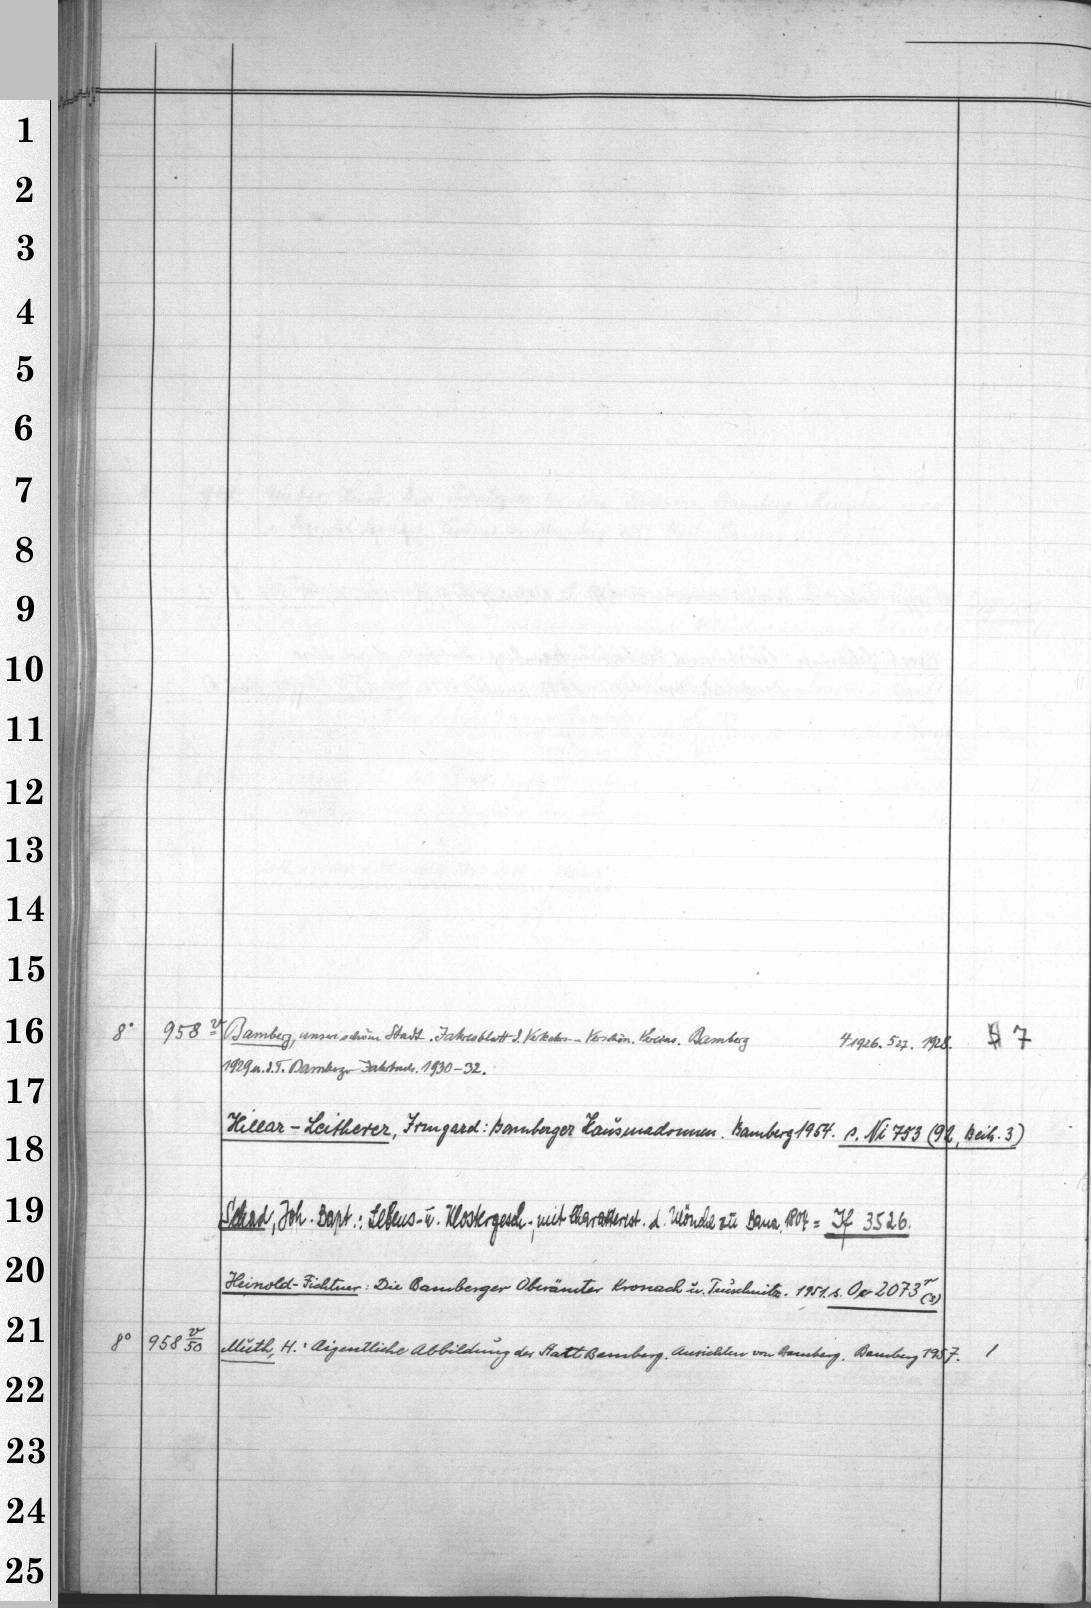 1
2
3
4
5
6
7
8
9
10
11
12
13
14
15
16
17
18
19
20
21
22
23
24
25
8° 958 v Bamberg, unsere schöne Stadt. Jahresblatt d. Verkehrs- Verschön. Vereins. Bamberg 4 1926. 5 27. 1928. 7
1929 u. d. T. Bamberger Jahrbuch. 1930-32.
Hillar-Leitherer, Irmgard: Bamberger Hausmadonnen. Bamberg 1954. s. Ni 753 (92, Beih. 3)
Schad, Joh. Bapt.: Lebens- u. Klostergesch., mit Charakterist. d. Mönche zu Banz. = If 3526.
Heinold-Fichtner: Die Bamberger Oberämter Kronach u. Teuschnitz. 1951. s. 2073 r (3)
8° 958 v/50 Muth, H.: Aigentliche Abbildung der Statt Bamberg. Ansichten von Bamberg. Bamberg 1957. 1